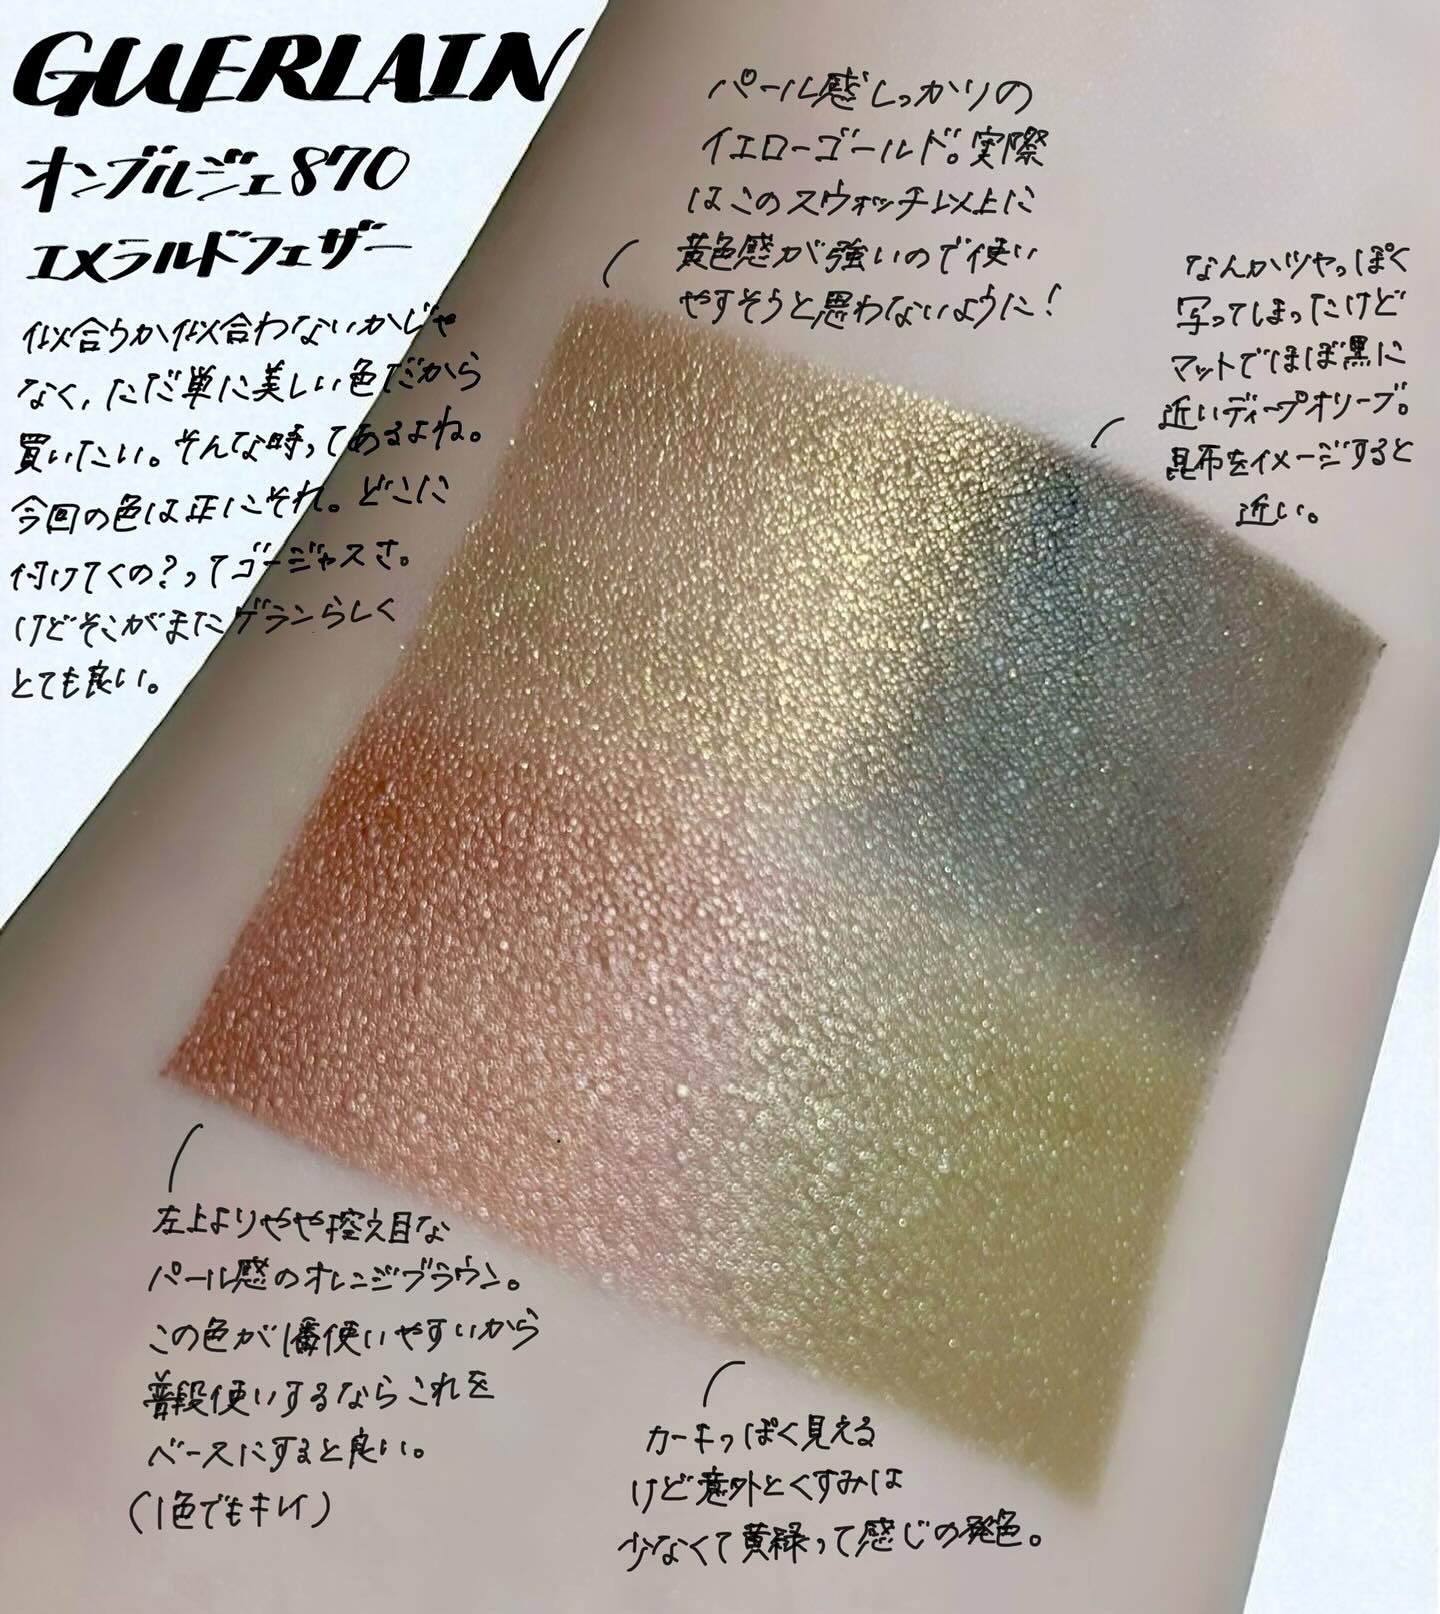 GUERLAIN
オンブルジェ870
エメラルドフェザー
似合うか似合わないかじゃ
なく、ただ単に美しい色だから
買いたい。そんな時ってあるよね。
今回の色は正にそれ。どこに
付けてくの?ってゴージャスさ。
けどそこがまたゲランらしく
とても良い。
パール感しっかりの
イエローゴールド。実際
はこのスウォッチ以上に
黄色感が強いので使い
やすそうと思わないように!
なんかツヤっぽく
写ってしまったけど
マットでほぼ黒に
近いディープオリーブ。
昆布をイメージすると
近い。
左上よりやや控え目な
パール感のオレンジブラウン。
この色が1番使いやすいから
普段使いするならこれを
ベースにすると良い。
(1色でもキレイ)
カーキっぽく見える
けど意外とくすみは
少なくて黄緑って感じの発色。